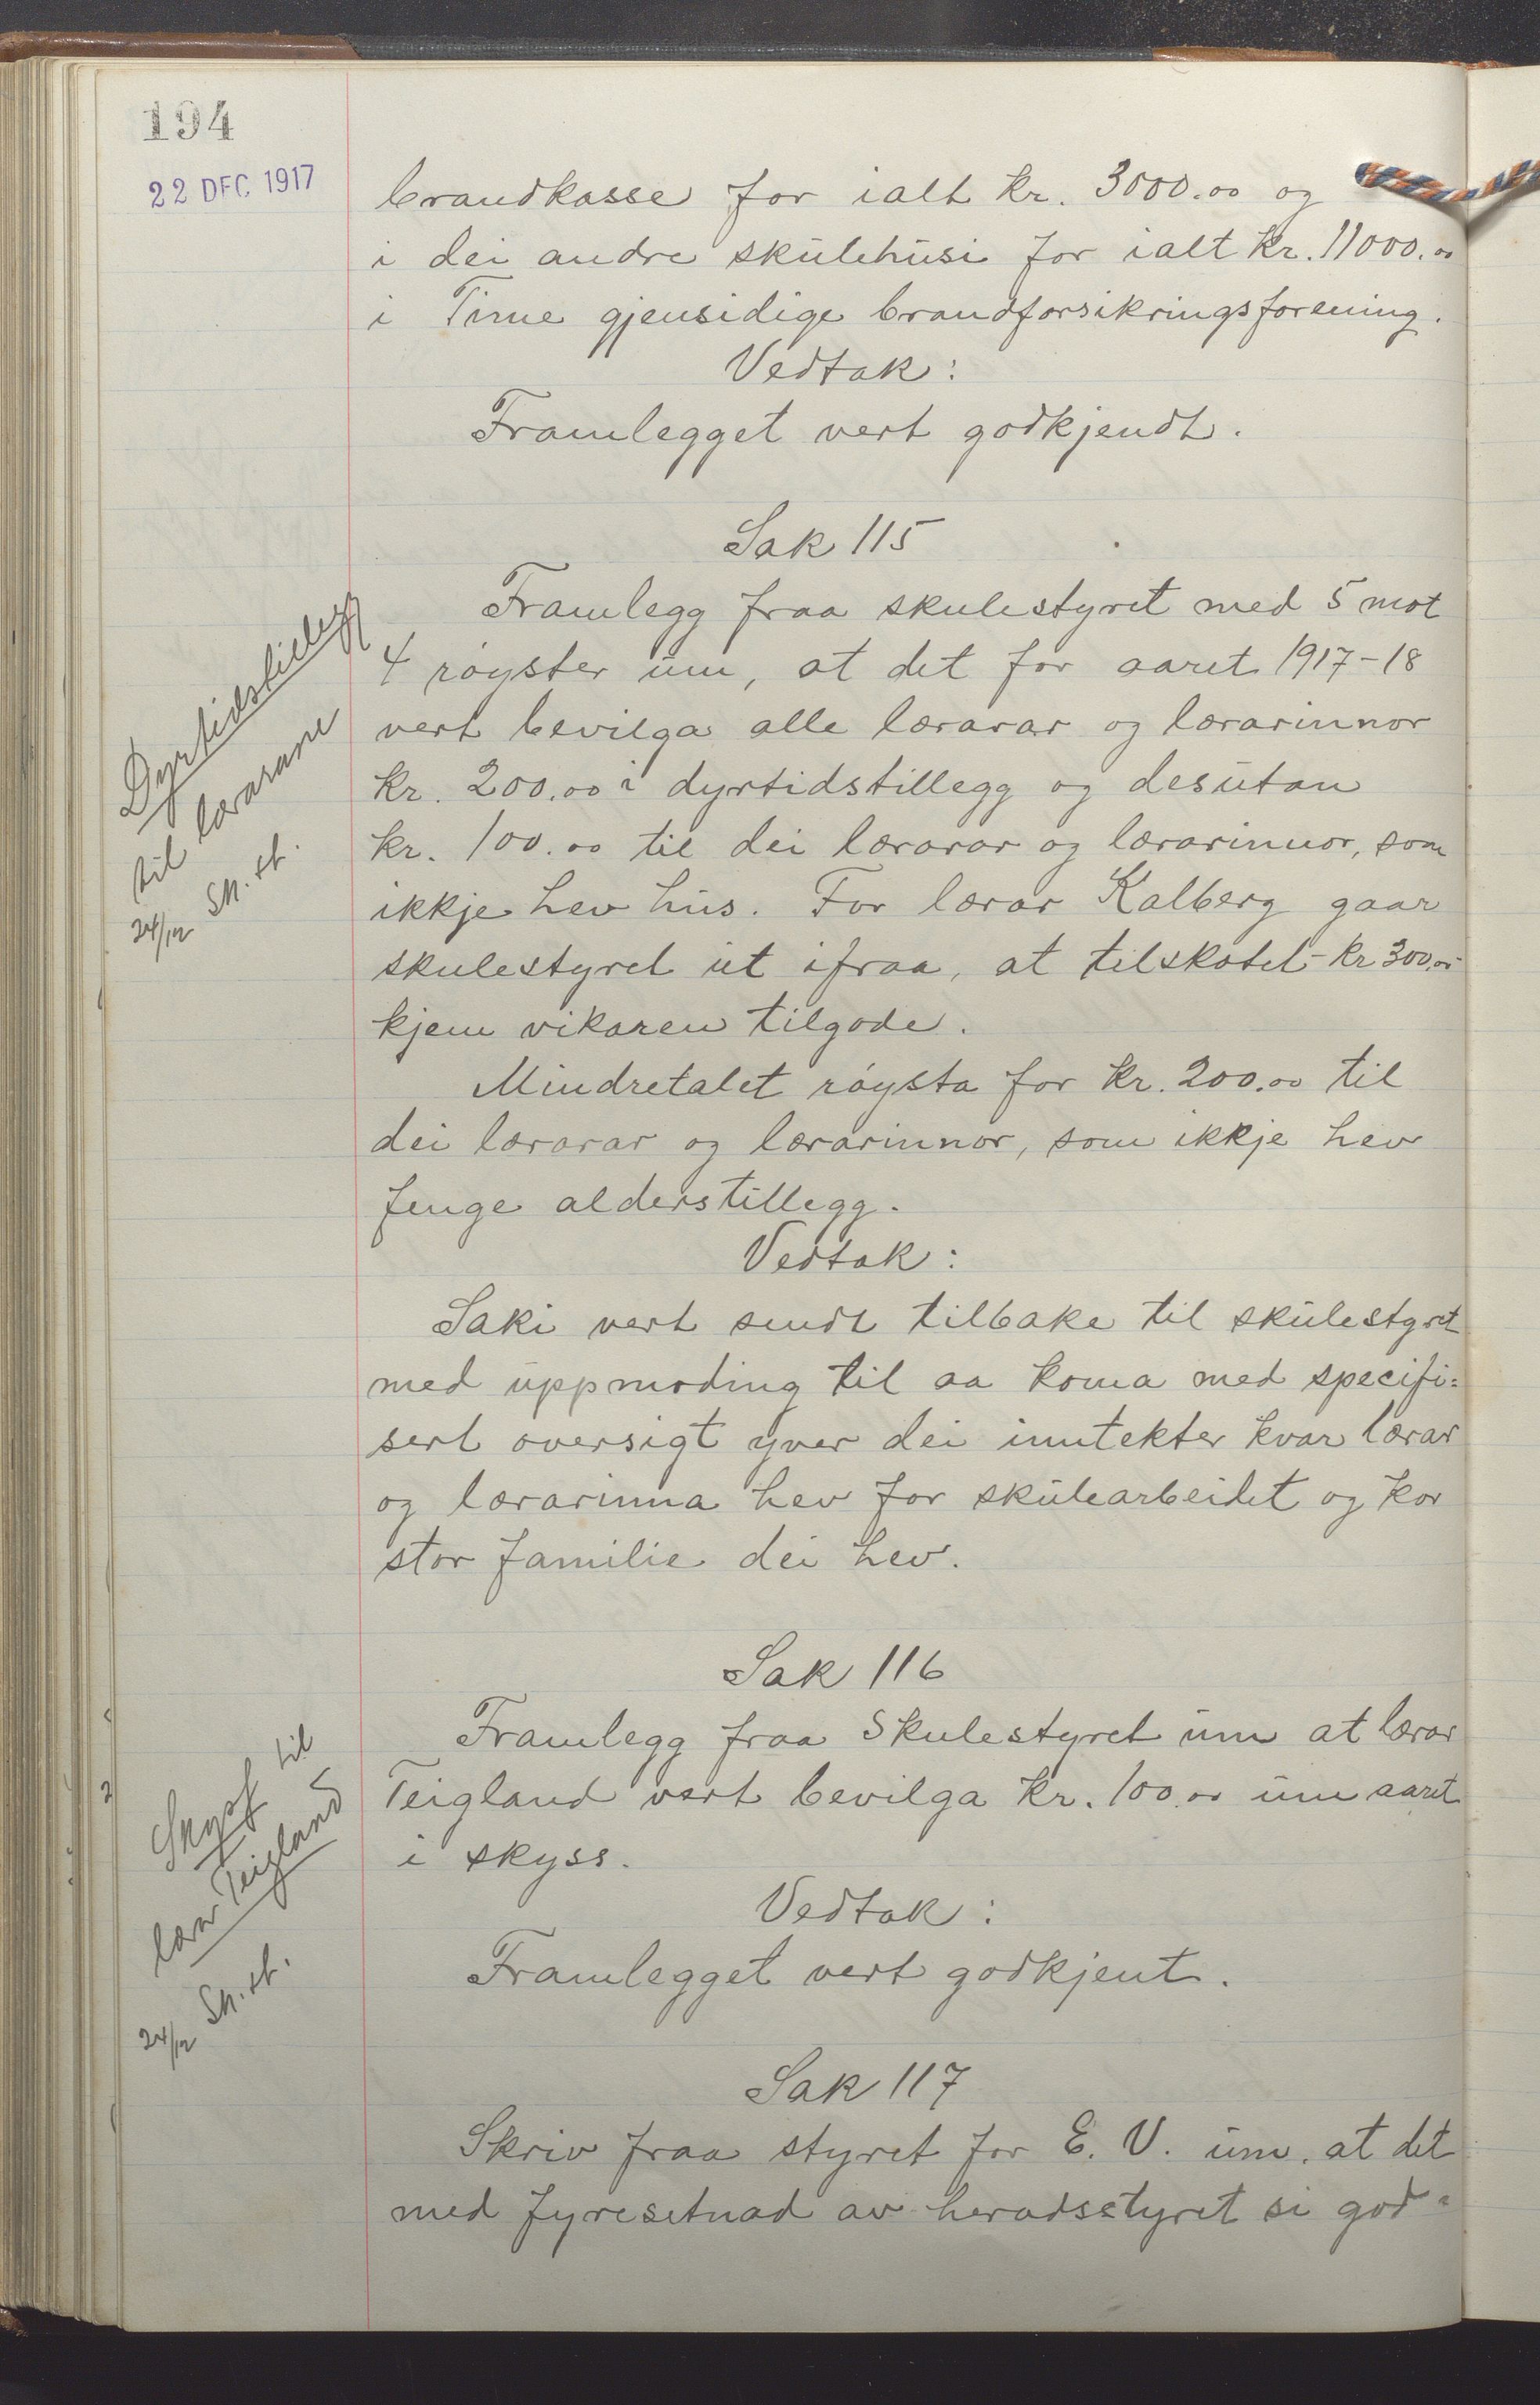 194
22 DEC 1917
brandkasse for ialt kr. 3000.00 og
i dei andre skulehusi for ialt kr. 11000.00
i Time gjensidige brandforsikringsforening.
Vedtak:
Framlegget vert godkjendt.
Sak 115
Dyrtidstillegg
til lærarane
Sk. st.
24/12
Framlegg fraa skulestyret med 5 mot
4 røyster um, at det for aaret 1917-18
vert bevilga alle lærarar og lærarinnor
kr. 200.00 i dyrtidstillegg og desutan
kr. 100.00 til dei lærarar og lærarinnor, som
ikkje hev hus. For lærar Kalberg gaar
skulestyret ut ifraa, at tilskotet - kr 300.00 -
kjem vikaren tilgode.
Mindretalet røysta for kr. 200.00 til
dei lærarar og lærarinnor, som ikkje hev
fenge alderstillegg.
Vedtak:
Saki vert sendt tilbake til skulestyret
med uppmoding til aa koma med specifi=
sert oversigt yver dei inntekter kvar lærar
og lærarinna hev for skulearbeidet og kor
stor familie dei hev.
Sak 116
Skyss til
lærar Teigland
Sk. st.
24/12
Framlegg fraa Skulestyret um at lærar
Teigland vert bevilga kr. 100.00 um aaret
i skyss.
Vedtak:
Framlegget vert godkjent.
Sak 117
Skriv fraa styret for E. V. um, at det
med fyresetnad av heradsstyret si god=